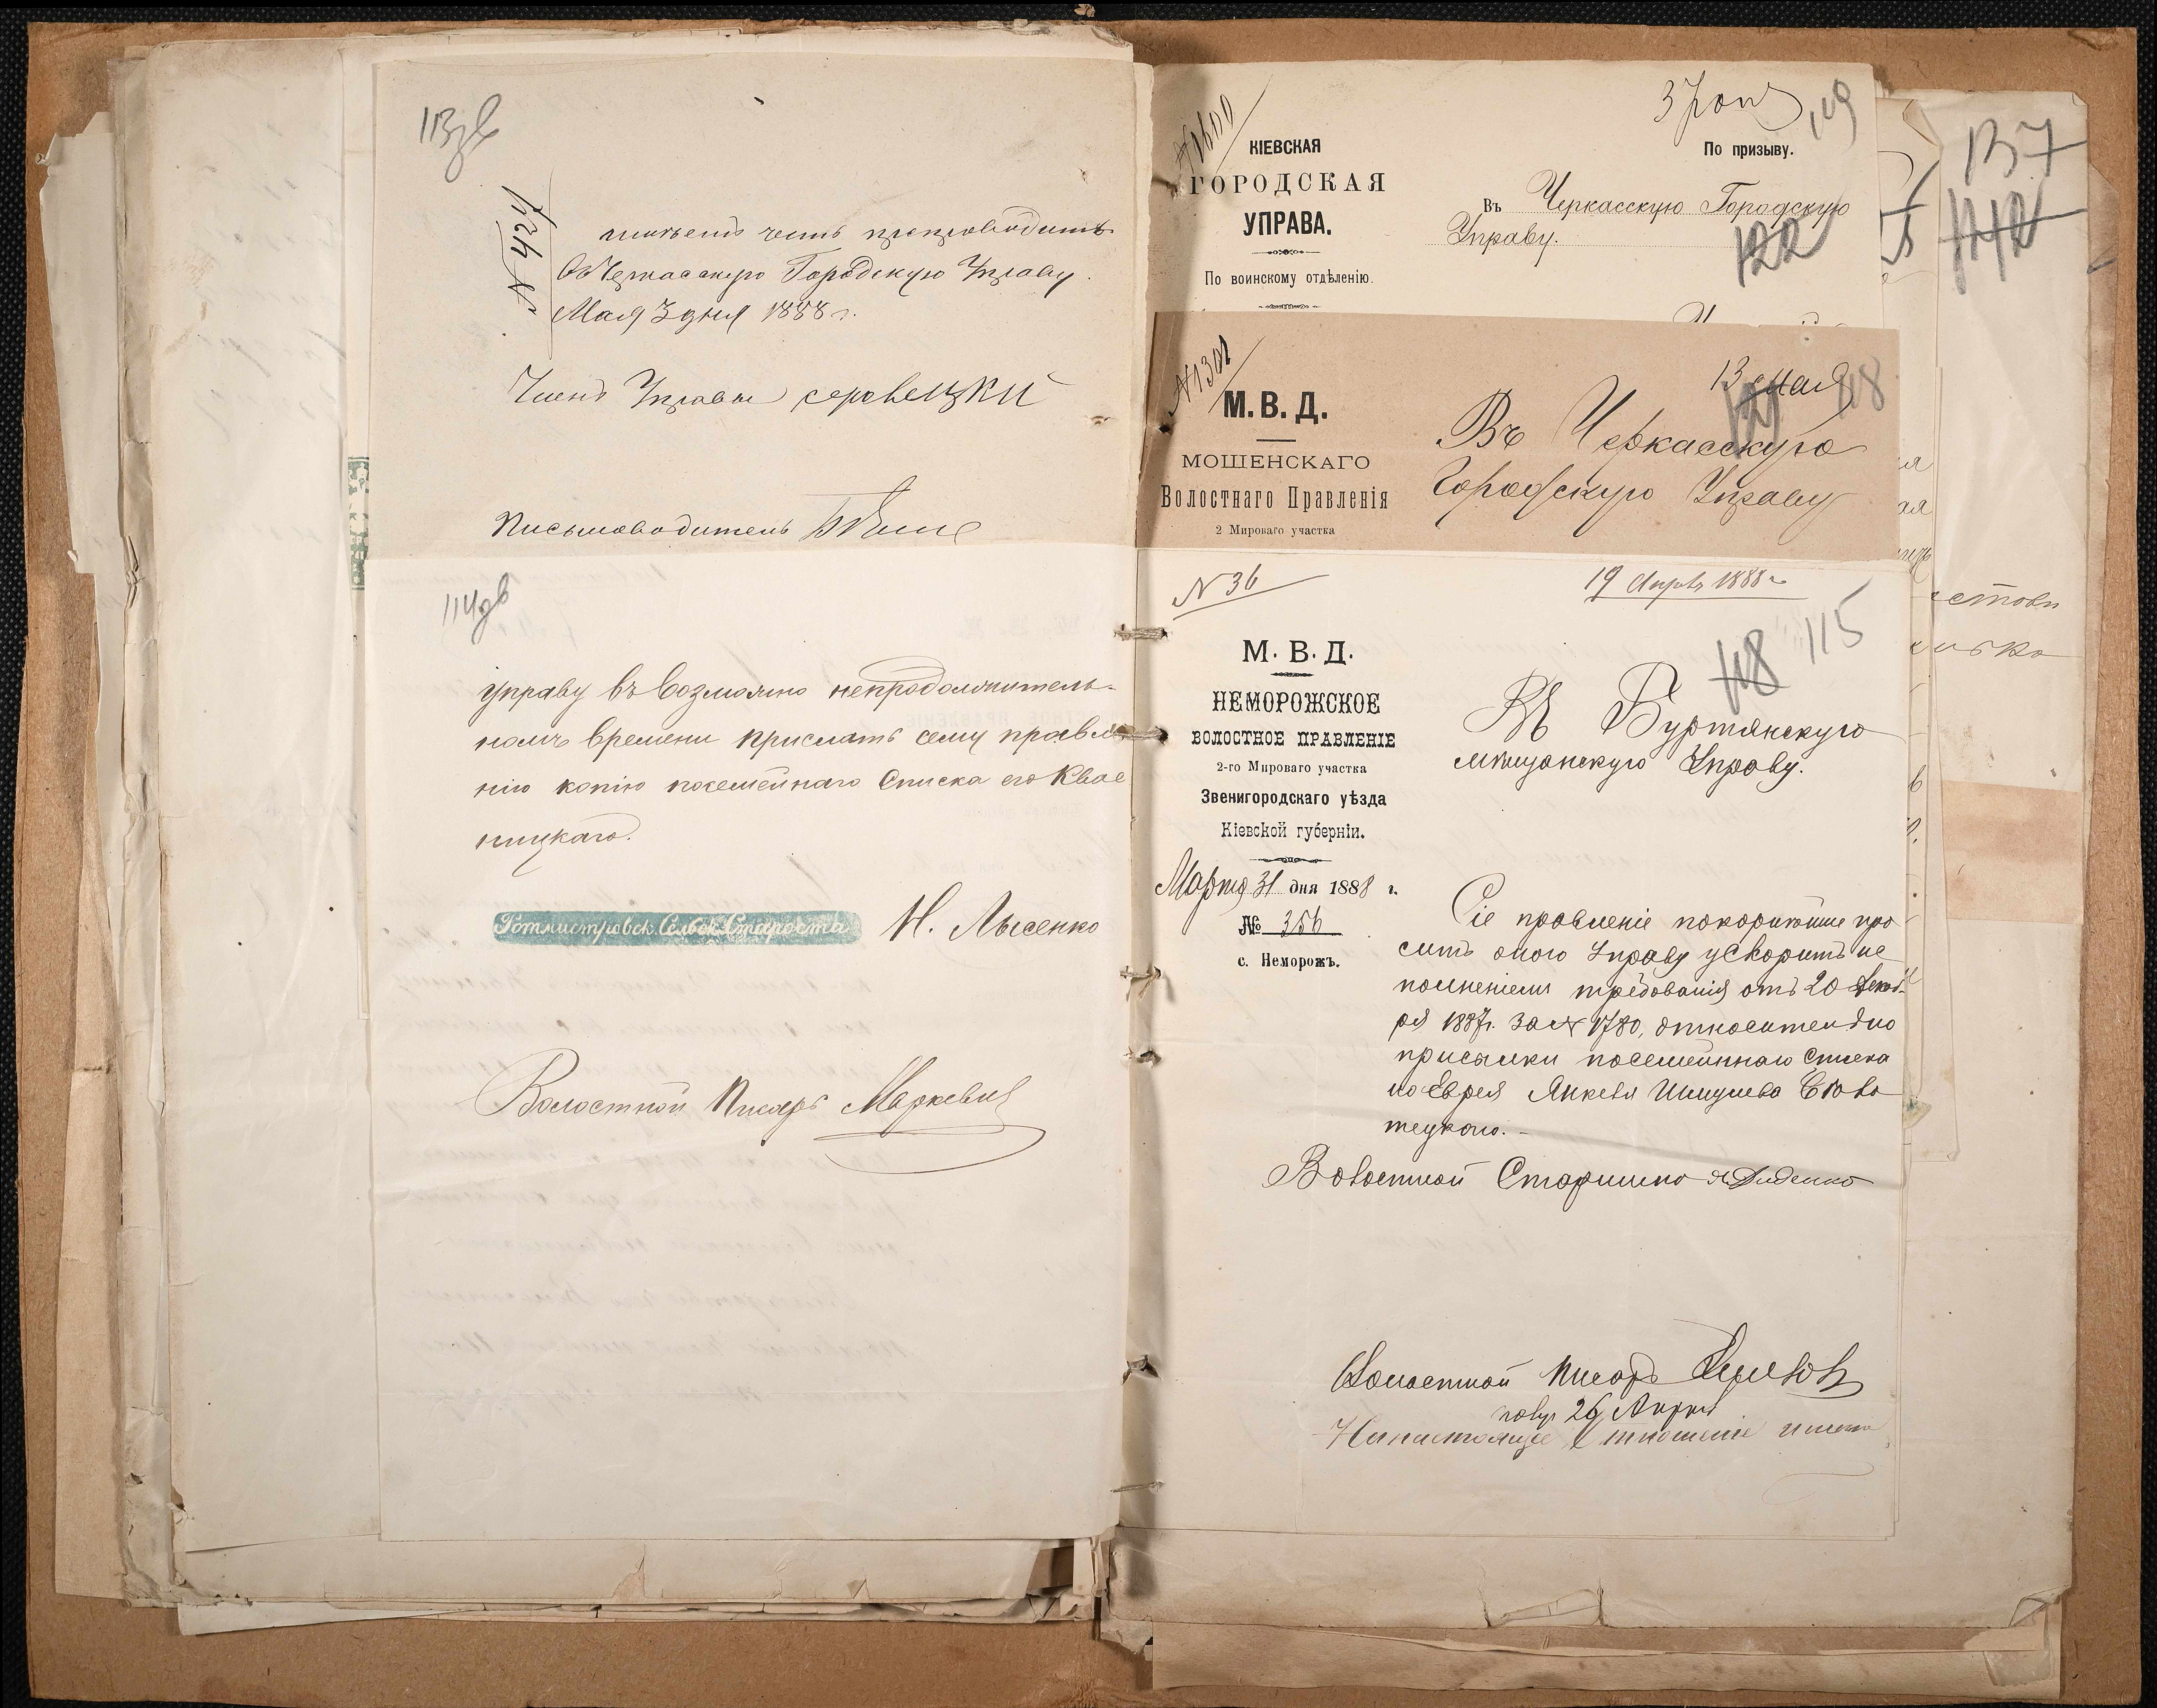 113зв
№ 424
имѣетъ честь препроводить
въ Черкасскую Городскую Управу.
Мая 3 дня 1888 г.
Членъ Управы
Письмоводитель
114зв
управу въ возможно непродолжитель-
номъ времени прислать сему правле
нію копію посемейнаго списка его Квас
ницкаго.
Ротмистровск. Сельск. Староста Н. Лысенко
Волостной Писарь Маркевич
№ 1600
КІЕВСКАЯ
ГОРОДСКАЯ
УПРАВА.
По воинскому отдѣленію.
119
По призыву.
Въ Черкасскую Городскую
Управу.
122
№ 1301
М. В. Д.
МОШЕНСКАГО
Волостнаго Правленія
2 Мироваго участка
13 мая
121
118
Въ Черкасскую
Городскую Управу
№ 36
19 Апрѣ 1888 г.
М. В. Д.
НЕМОРОЖСКОЕ
ВОЛОСТНОЕ ПРАВЛЕНІЕ
2-го Мироваго участка
Звенигородскаго уѣзда
Кіевской губерніи.
Марта 31 дня 1888 г.
№ 356
с. Неморожъ.
118
115
Въ Буртянскую
мѣщанскую Управу.
Сіе правленіе покорнѣйше про
ситъ оную Управу ускорить ис
полненіемъ требованія отъ 20 Декаб
ря 1887г. за № 1780, относительно
присылки посемейнаго списка
на Еврея Янкеля
Волостной Старшина Диденко
Волостной Писарь
полу 26 Апрѣл
На настоящее отношеніе
137
142